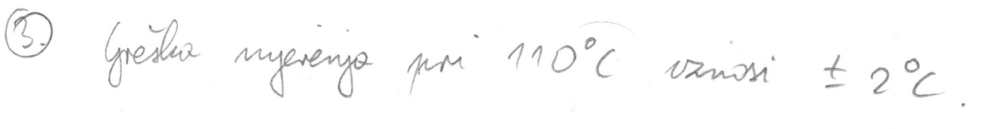 3. Greška mjerenja pri 110°C iznosi ± 2°C.